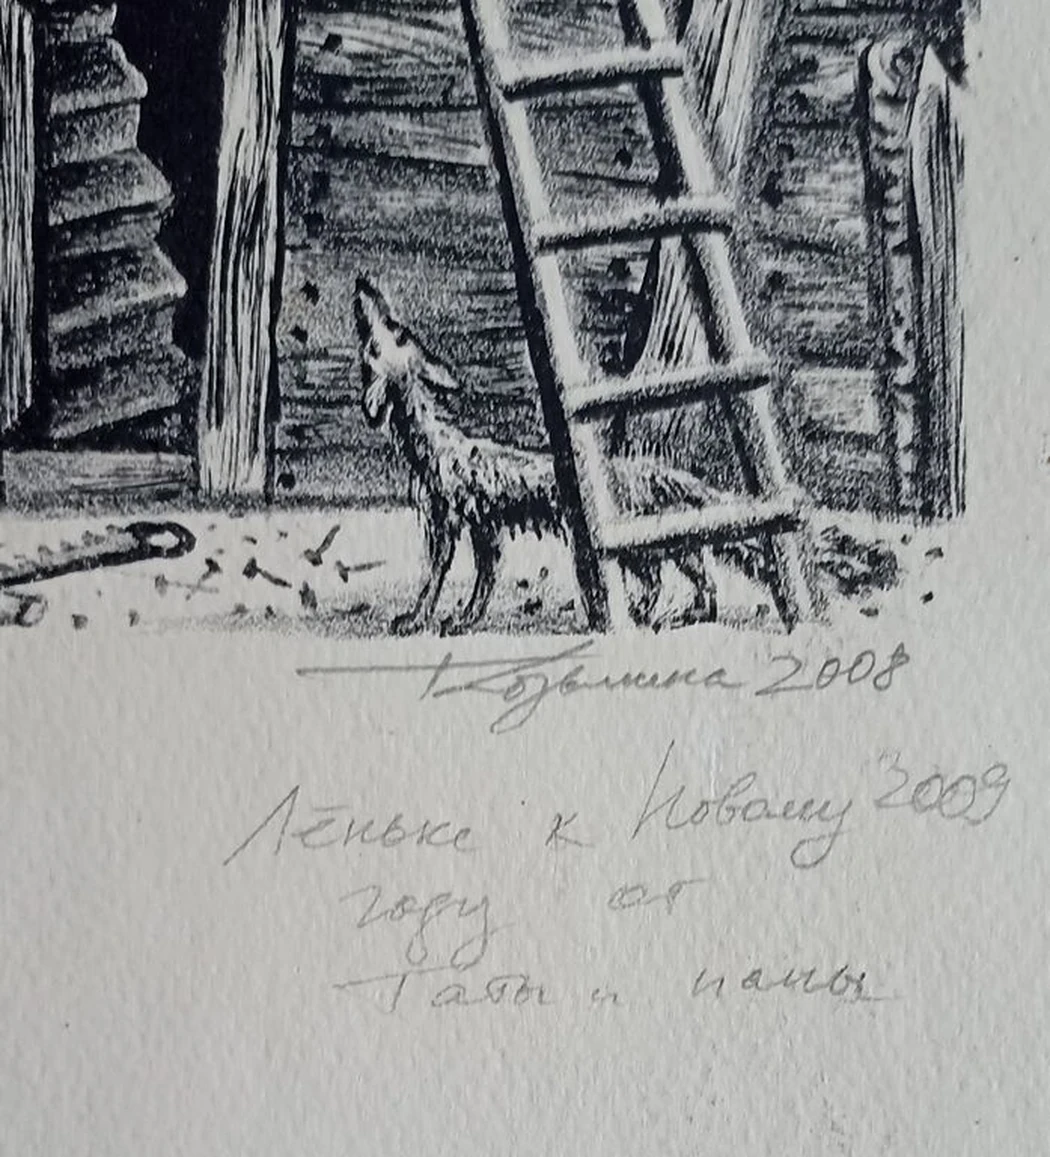 Козьмина 2008
Лёньке к Новому 2009
году от
Таты и папы